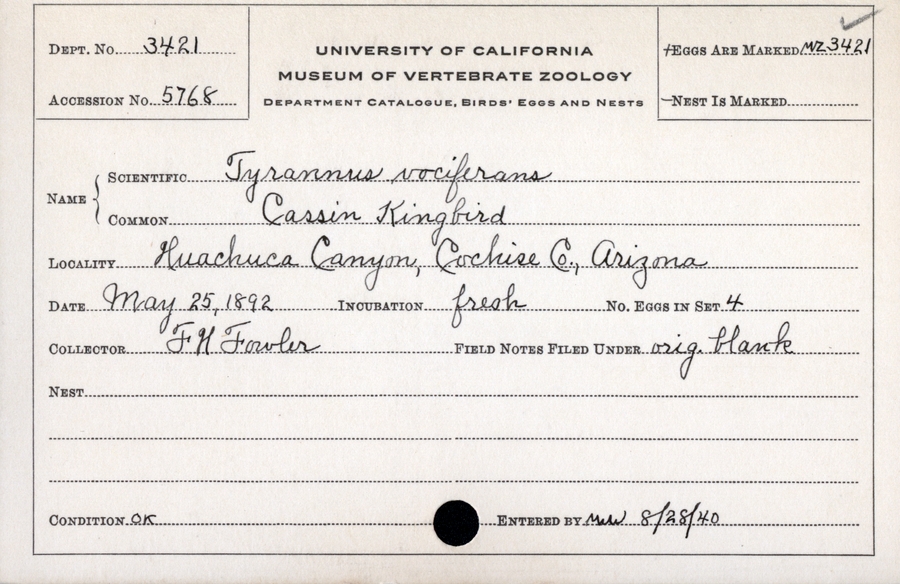 Dept. No. 3421
Accession No. 5768
UNIVERSITY OF CALIFORNIA
MUSEUM OF VERTEBRATE ZOOLOGY
Department Catalogue, Birds' Eggs and Nests
Eggs Are Marked MZ3421
Nest Is Marked
Name
Scientific Tyrannus vociferans
Common Cassin Kingbird
Locality Huachuca Canyon, Cochise Co., Arizona
Date May 25, 1892 Incubation fresh No. Eggs in Set 4
Collector F H Fowler Field Notes Filed Under orig. blank
Nest
Condition OK Entered by 8/28/40